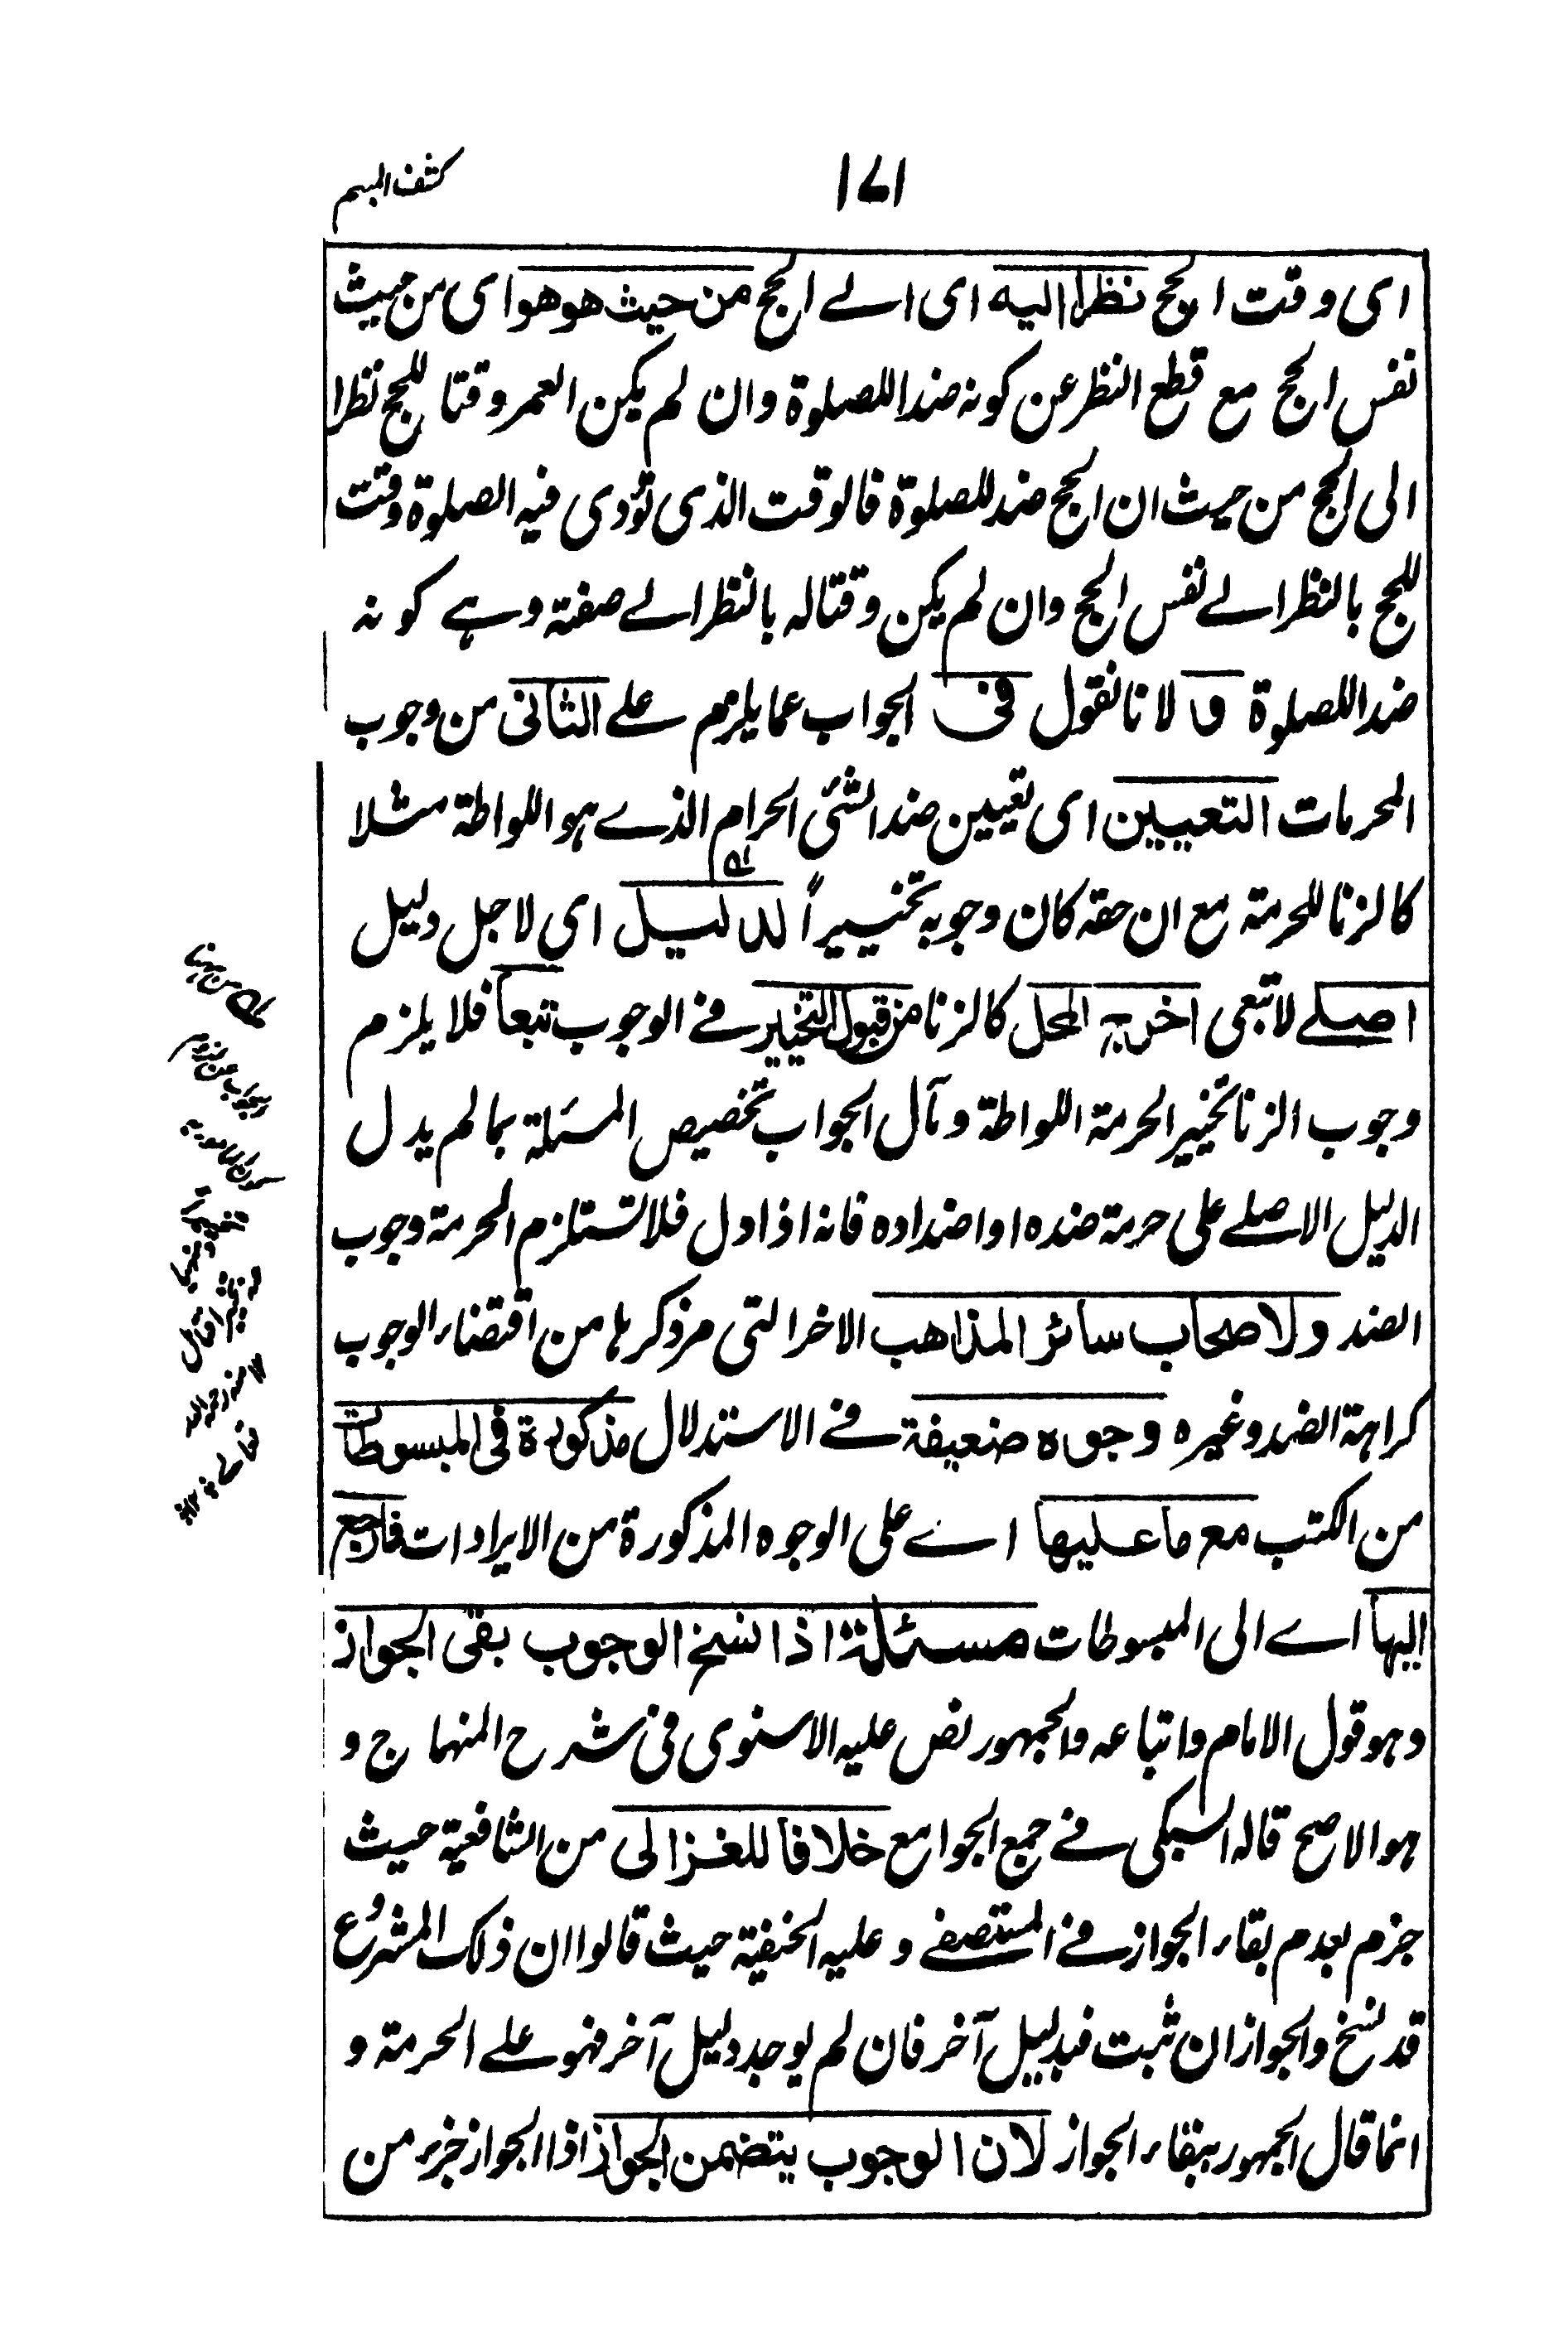 ١٧١
كشف المبهم
اى وقت الحج نظرا اليه اى الى الحج من حيث هو هو اى من حيث
نفس الحج مع قطع النظر عن كونه ضدا للصلوة وان لم يكن العمر وقتا للحج نظرا
الى الحج من حيث ان الحج ضد للصلوة فالوقت الذى تؤدى فيه الصلوة وقت
للحج بالنظر الى نفس الحج وان لم يكن وقتا له بالنظر الى صفته وهى كونه
ضدا للصلوة و لانا نقول فى الجواب عما يلزم على الثانى من وجوب
المحرمات التعيين اى تعيين ضد الشئى الحرام الذى هو اللواطة مثلا
كالزنا للحرمة مع ان حقه كان وجوبه تخييراً لدليل اى لاجل دليل
اصلى لا تبعى اخرج المحل كالزنا من قبول التخيير فى الوجوب تبعا فلا يلزم
وجوب الزنا تخيير الحرمة اللواطة ومآل الجواب تخصيص المسئلة بما لم يدل
الدليل الاصلى على حرمة ضده او اضداده فانه اذا دل فلا تستلزم الحرمة وجوب
الضد ولاصحاب سائر المذاهب الاخر التى مر ذكرها من اقتضاء الوجوب
كراهة الضد وغيره وجوه ضعيفة فى الاستدلال مذكورة فى المبسوطات
من الكتب مع ما عليها اى على الوجوه المذكورة من الايرادات فارجع
اليها اى الى المبسوطات مسئلة اذا نسخ الوجوب بقى الجواز
وهو قول الامام واتباعه والجمهور نص عليه الاسنوى فى شرح المنهاج و
هو الاصح قاله السبكى فى جمع الجوامع خلافا للغزالى من الشافعية حيث
جزم بعدم بقاء الجواز فى المستصفى وعليه الحنفية حيث قالوا ان ذلك المشروع
قد نسخ والجواز ان ثبت فبدليل آخر فان لم يوجد دليل آخر فهو على الحرمة و
انما قال الجمهور ببقاء الجواز لان الوجوب يتضمن الجواز اذا الجواز جزء من